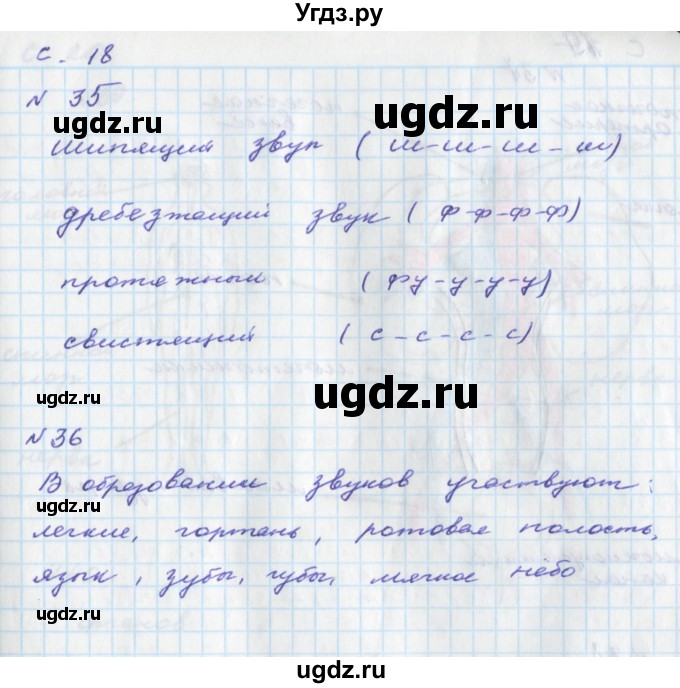 Угдз.ру
с. 18
№ 35
Шипящий звук ( ш-ш-ш-ш)
дребезжащий звук ( ф-ф-ф-ф)
протяжный ( фу-у-у-у)
свистящий ( с-с-с-с)
№ 36
В образовании звуков участвуют:
легкие, гортань, ротовая полость,
язык, зубы, губы, мягкое небо
ugdz.ru
ugdz.ru
ugdz.ru
ugdz.ru
ugdz.ru
ugdz.ru
ugdz.ru